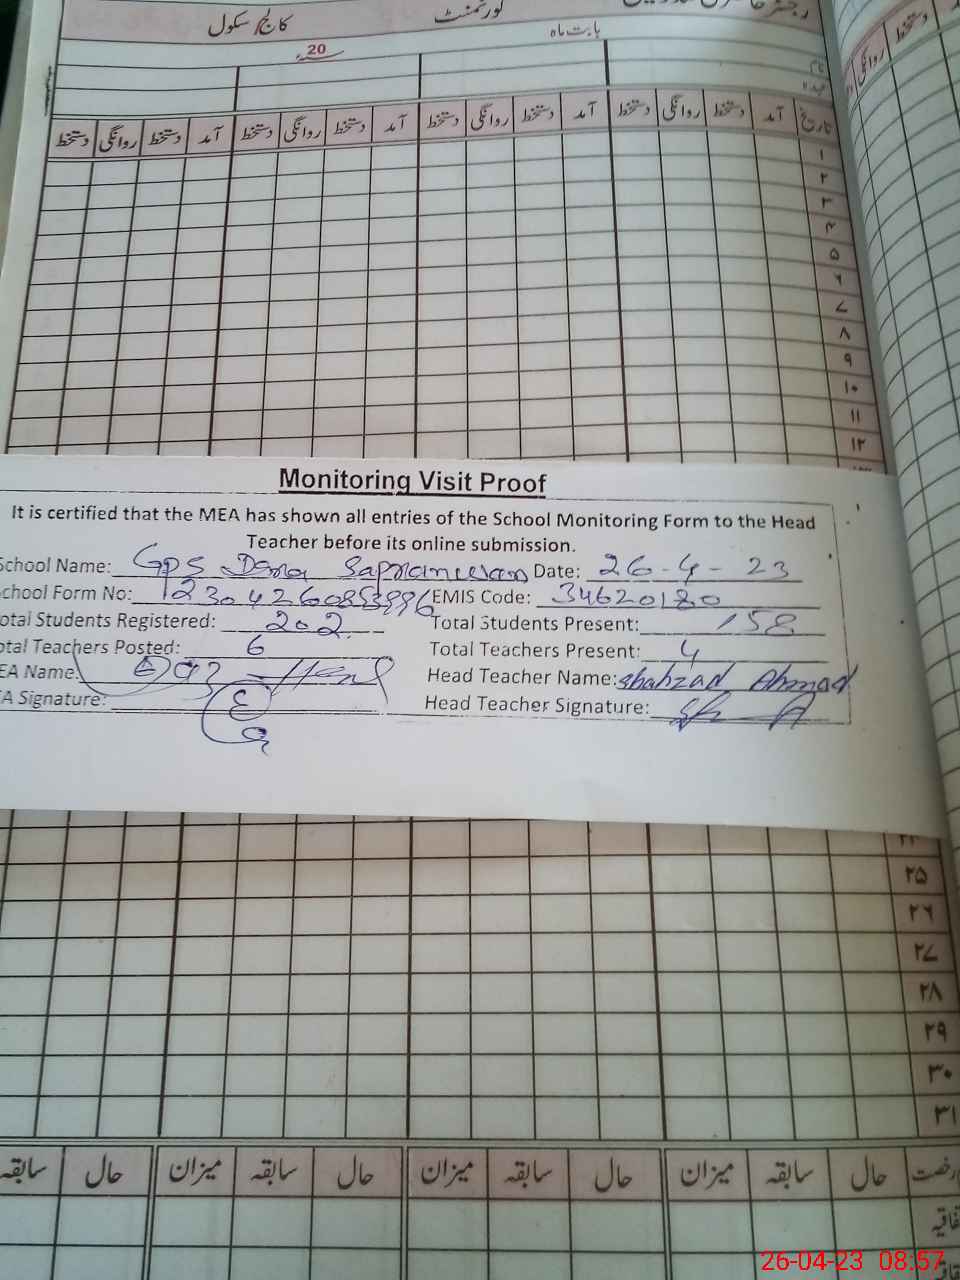 گورنمنٹ
کالج/سکول
بابت ماہ
20
تاریخ آمد دستخط روانگی دستخط آمد دستخط روانگی دستخط آمد دستخط روانگی دستخط آمد دستخط روانگی دستخط
۱
۲
۳
۴
۵
۶
۷
۸
۹
۱۰
۱۱
۱۲
Monitoring Visit Proof
It is certified that the MEA has shown all entries of the School Monitoring Form to the Head
Teacher before its online submission.
School Name: GPS Date: 26-4-23
School Form No: EMIS Code: 34620180
Total Students Registered: 202 Total Students Present: 158
Total Teachers Posted: 6 Total Teachers Present: 4
EA Name: Head Teacher Name: Shahzad Ahmad
A Signature: Head Teacher Signature:
۲۵
۲۶
۲۷
۲۸
۲۹
۳۰
۳۱
رخصت حال سابقہ میزان حال سابقہ میزان حال سابقہ میزان حال سابقہ
26-04-23 08:57